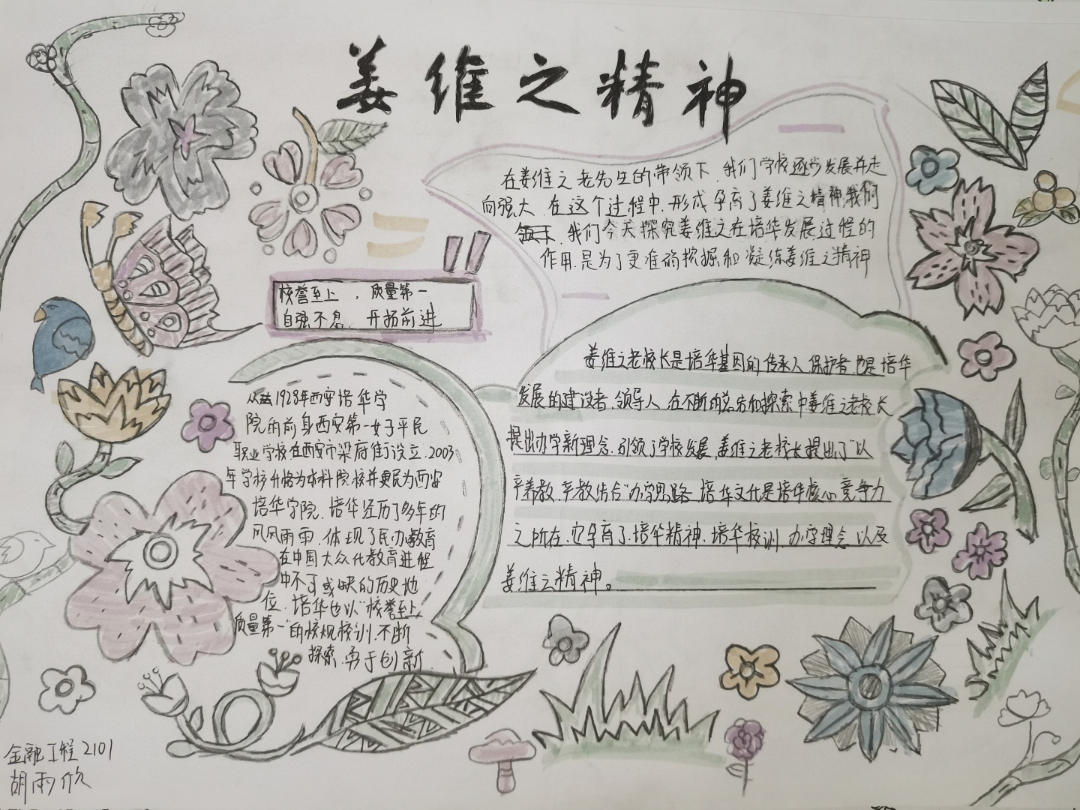 姜维之精神
在姜维之老先生的带领下,我们学校逐步发展并走
向强大,在这个过程中,形成孕育了姜维之精神,我们
我们今天探究姜维之在培华发展过程的
作用,是为了更准确挖掘和凝练姜维之精神
校誉至上,质量第一
自强不息,开拓前进
姜维之老校长是培华基因的传承人,保护者,也是培华
发展的建设者,领导人,在不断的总结和探索中姜维之老校长
提出办学新理念,引领了学校发展,姜维之老校长提出了"以
产养教,产教结合"办学思路,培华文化是培华核心竞争力
之所在,它孕育了培华精神,培华校训,办学理念以及
姜维之精神。
从1928年西安培华学
院的前身西安第一女子平民
职业学校在西安市梁府街设立,2003
年学校升格为本科院校并更名为西安
培华学院,培华经历了多年的
风风雨雨,体现了民办教育
在中国大众化教育进程
中不可或缺的历史地
位,培华也以"校誉至上,
质量第一"的校规校训,不断
探索,勇于创新.
金融工程2101
胡雨欣